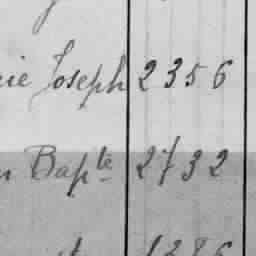 ie Joseph 2356
n Bapte 2732
1286